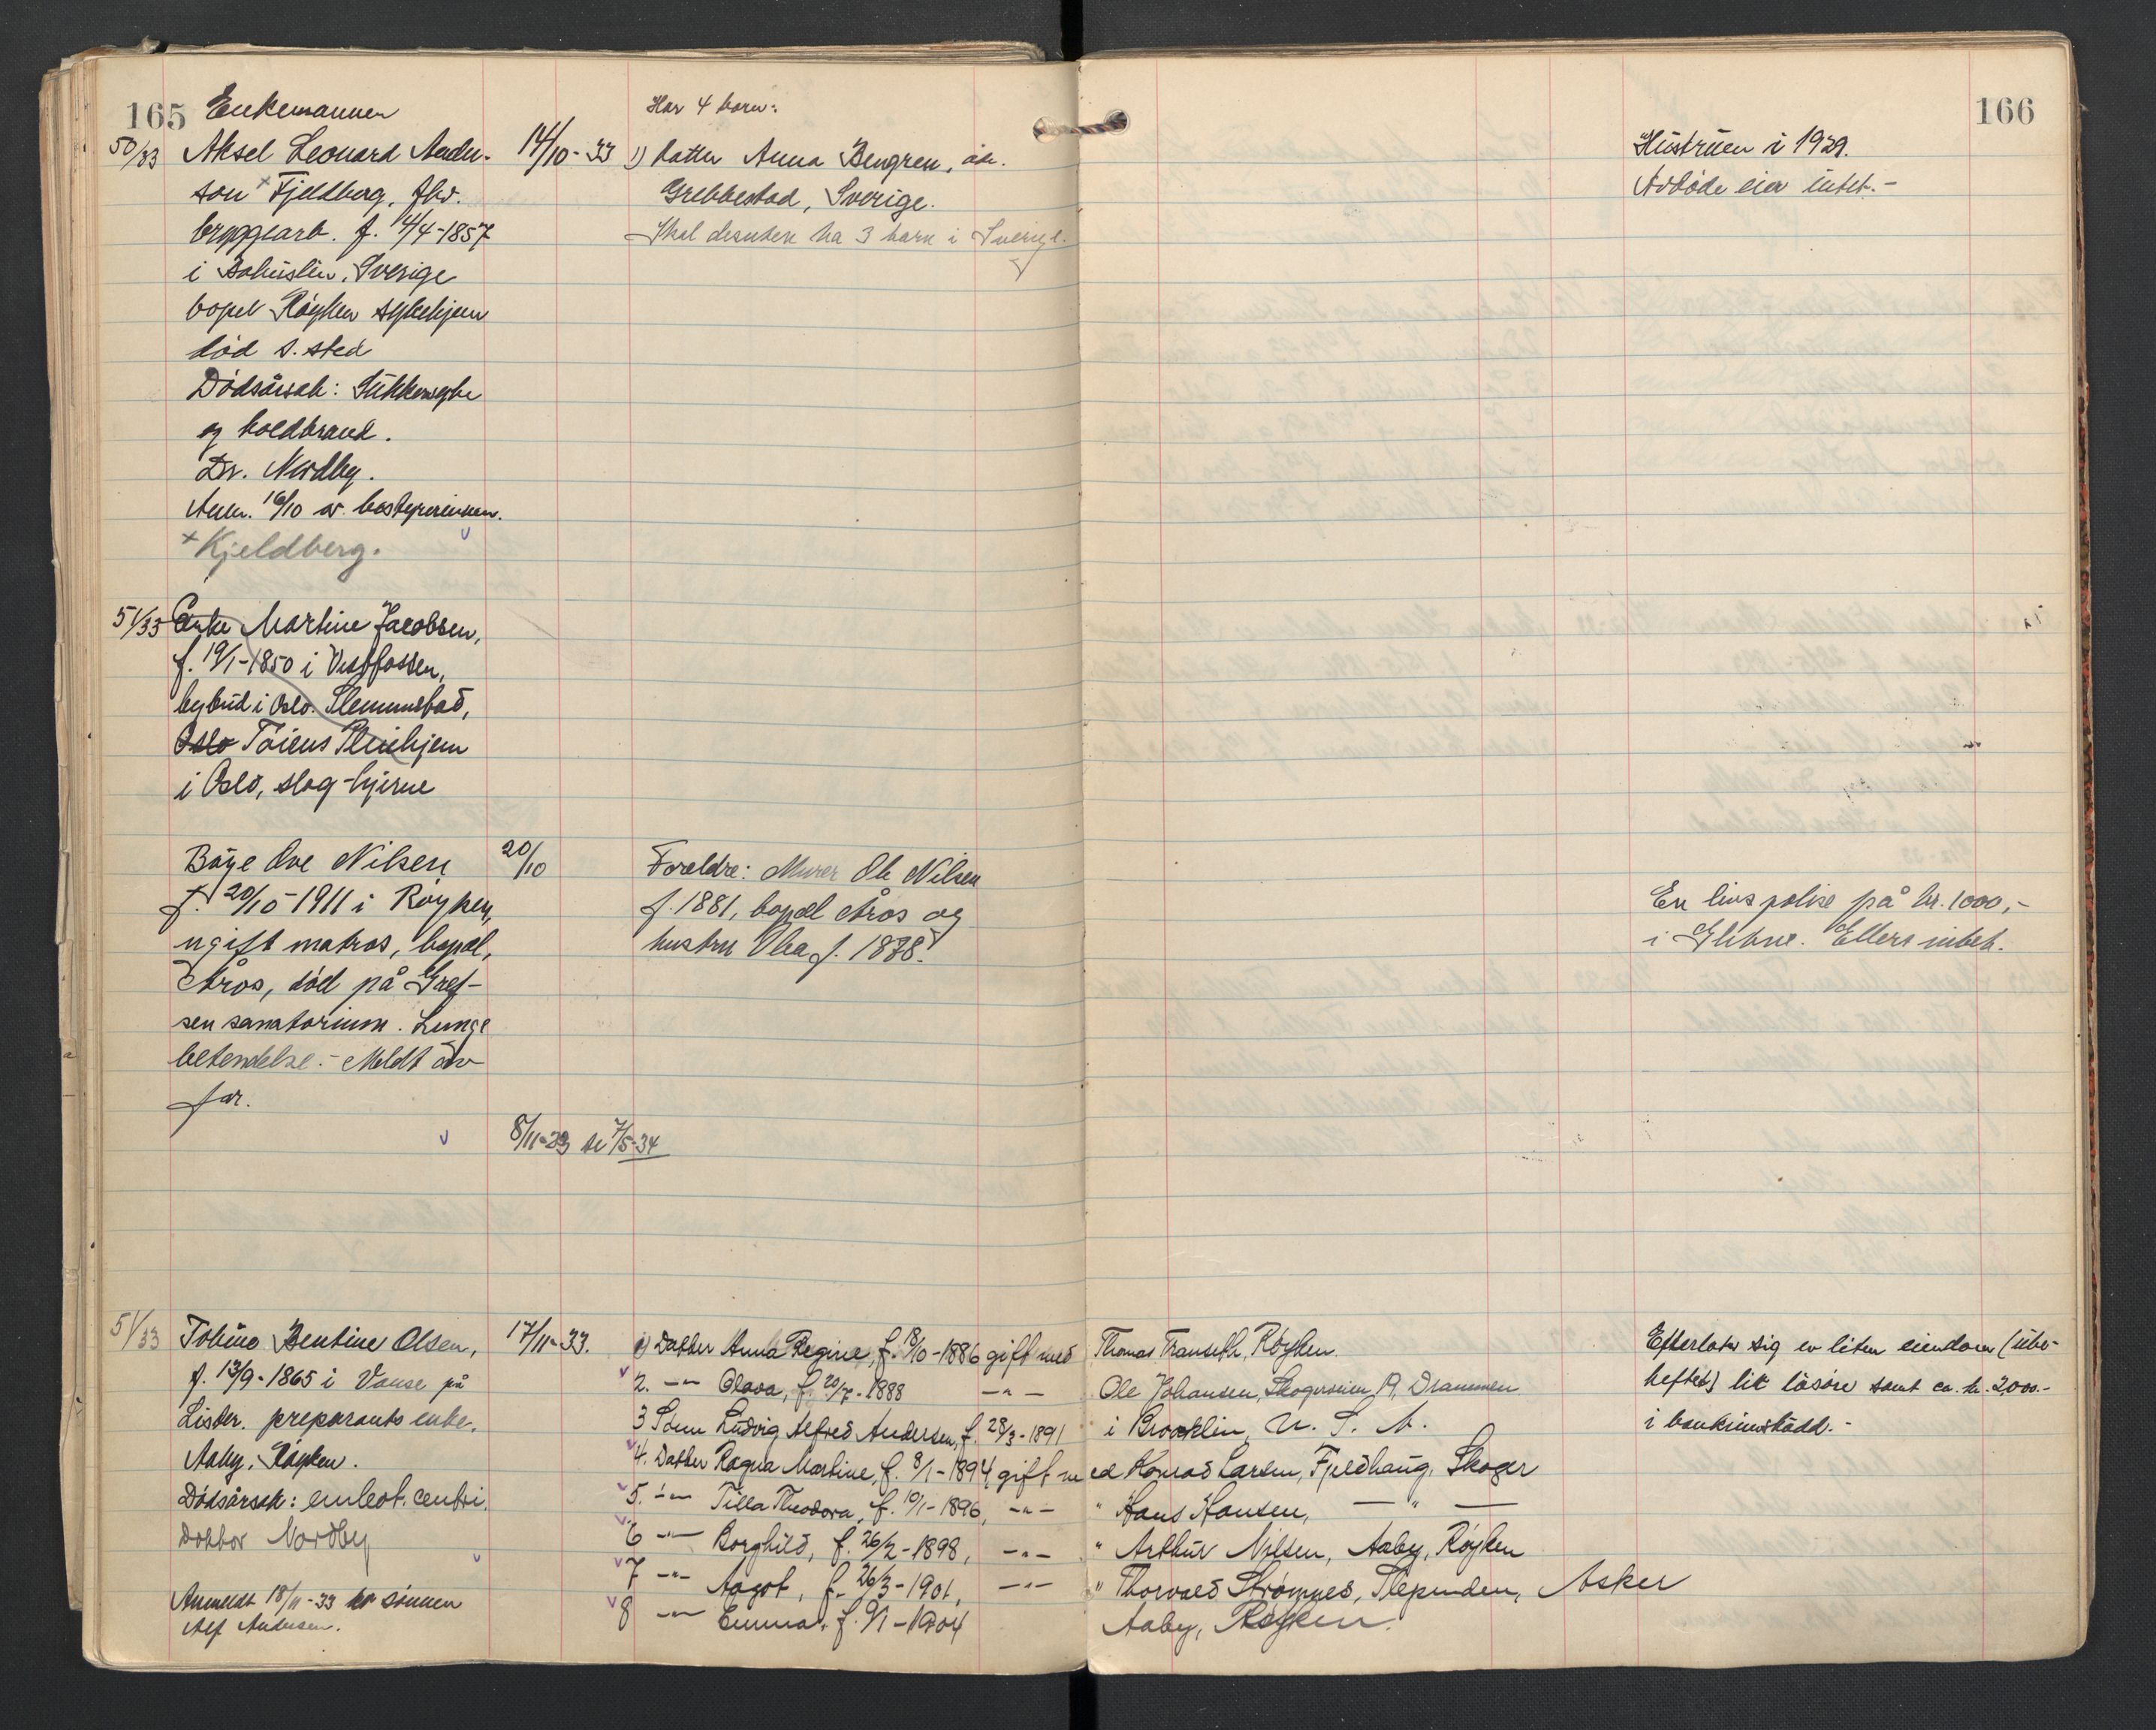 165
Enkemannen
50/33 Aksel Leonard Ander-
son x Fjeldberg, fhv.
bryggearb. f. 14/4-1857
i Bohuslen, Sverige
bopel Röyken sykehjem
död s. sted
Dödsårsak: Sukkersyke
og koldbrand.
Dr. Nordby.
Anm. 16/10 av bestyrerinnen.
x Kjeldberg.
14/10-33
Har 4 barn:
1) Datter Anna Bengren,
Grebbestad, Sverige.
Skal desuten ha 3 barn i Sverige.
51/33 Enke Martine Jacobsen,
f. 19/1-1850 i Vestfossen,
bybud i Oslo. Slemmestad,
Oslo Töiens Pleiehjem
i Oslo, slag-hjerne
Böye Ove Nilsen
f. 20/10-1911 i Röyken,
ugift matros, bopæl,
Åros, död på Gref-
sen sanatorium. Lunge
betendelse.- Meldt av
far.
20/10
Foreldre: Murer Ole Nilsen
f. 1881, bopæl Åros og
hustru Olea f. 1878.
8/11-33 se 7/5-34
51/33 Tobine Bentine Olsen,
f. 13/9-1865 i Vanse på
Lister. preparants enke.
Aaby, Röyken.
Dödsårsak: centri.
Doktor Nordby
Anmeldt 18/11-33 av sönnen
Alf Andersen.
17/11-33.
1) Datter Anna Regine, f. 18/10-1886 gift med
2. -"- Olava, f. 20/7-1888 -"-
3 Sönn Ludvig Alfred Andersen, f. 28/3-1891
4. Datter Ragna Martine, f. 8/1-1894, gift med
5. -"- Tilla Theodora, f. 10/1-1896, -"-
6 -"- Borghild, f. 26/2-1898, -"-
7 -"- Aagot, f. 26/3-1901, -"-
8 -"- Emma, f. 9/1-1904
166
Hustruen i 1929.
Avdöde eier intet.-
En livspolise på kr. 1000,-
i Glitne. Ellers intet.
Thomas Transeth, Röyken.
Ole Johansen, Skogerveien 19, Drammen
i Brooklin, U. S. A.
Konrad Larsen, Fjeldhaug, Skoger
" Hans Hansen, -"-
" Arthur Nilsen, Aaby, Röyken
" Thorvald Strömnes, Slependen, Asker
Aaby, Röyken.
Efterlater sig en liten eiendom (ube-
heftet) lit lösöre samt ca. kr. 2000.-
i bankinnskudd.-